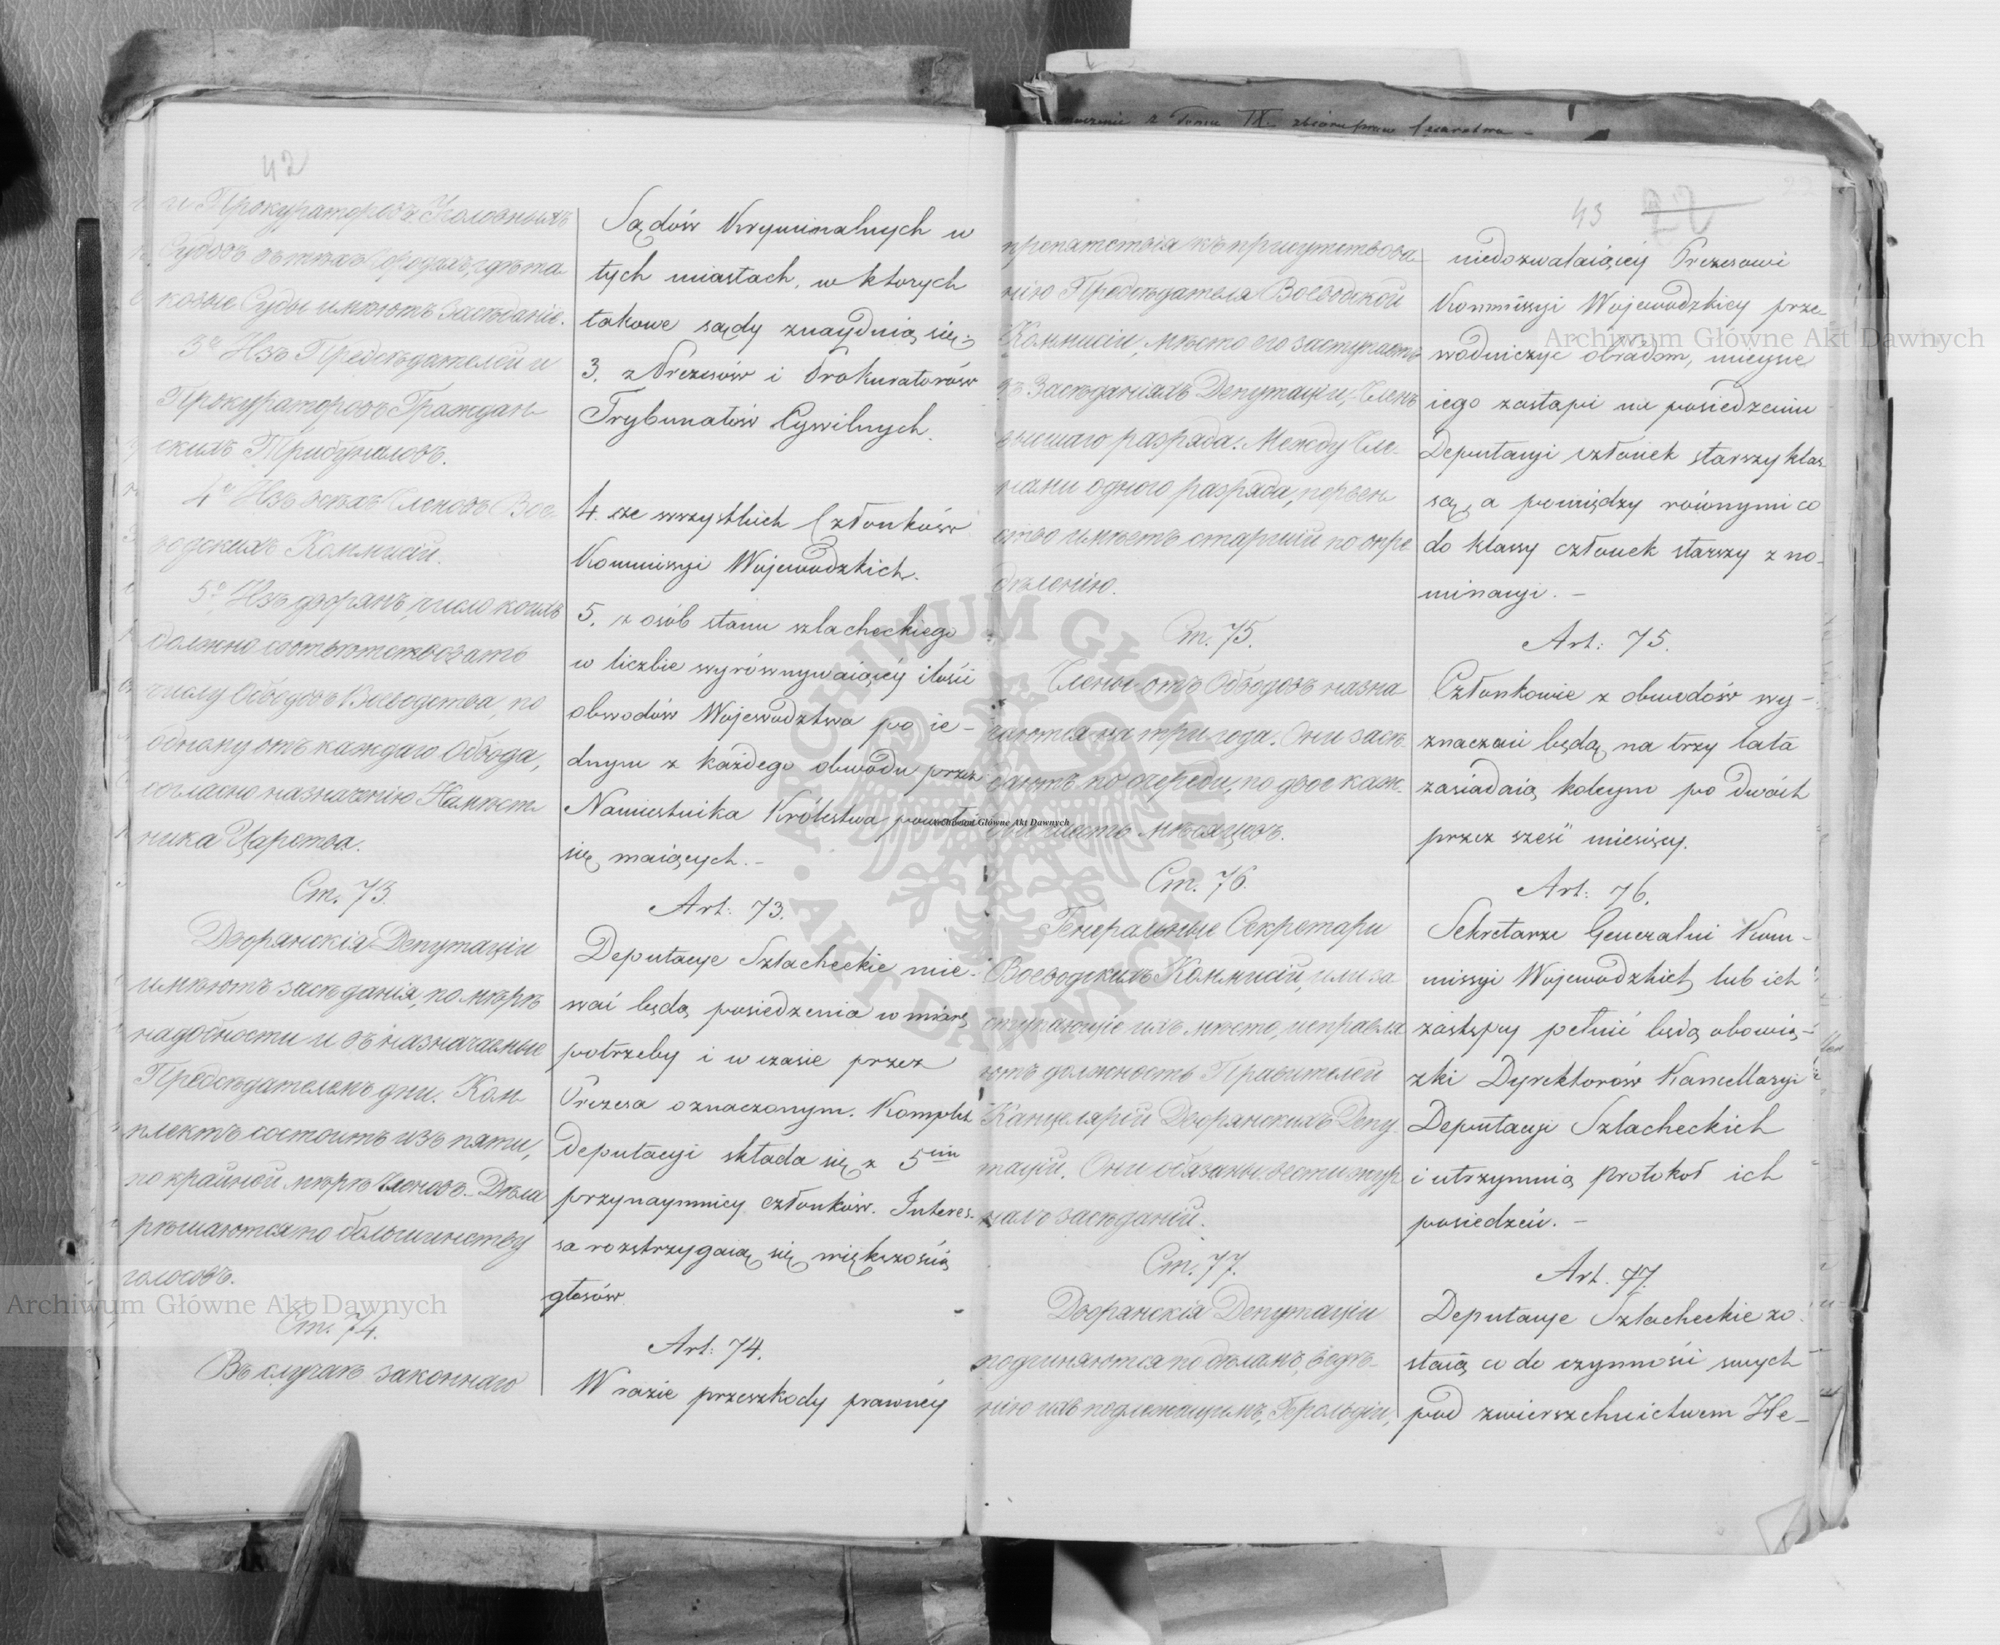 42
и Прокуроторовъ Уголовныхъ
Судовъ въ тѣхъ Городахъ, гдѣ та
ковые Суды имѣютъ Засѣданіе.
3е Изъ Предсѣдателей и
Прокураторовъ Граждан
скихъ Трибуналовъ.
4е Изъ всѣхъ Членовъ Вое-
водскихъ Коммисій.
5е Изъ дворянъ, число коихъ
должно соотвѣтствовать
числу Обводовъ Воеводства, по
одному отъ каждаго Обвода,
согласно назначенію Намѣст
ника Царства.
Ст. 73.
Дворянскія Депутаціи
имѣютъ засѣданія, по мѣрѣ
надобности и въ назначаемые
Предсѣдателемъ дни. Ком
плектъ состоитъ изъ пяти,
по крайней мѣрѣ Членовъ. Дѣла
рѣшаются по большинству
голосовъ.
Ст. 74.
Въ случаѣ законнаго
Sądów Kryminalnych w
tych miastach, w ktorych
takowe sądy znayduią się;
3. z Prezesow i Prokuratorów
Trybunałów Cywilnych.
4. ze wszystkich Członków
Kommissyi Wojewodzkich.
5. z osób stanu szlacheckiego
w liczbie wyrównywaiącéy ilości
obwodów Województwa po ie-
dnym z każdego obwodu przez
Namiestnika Królestwa powołać
się maiących.-
Art: 73.
Deputacye Szlacheckie mie-
wać będą posiedzenia w miarę
potrzeby i w czasie przez
Prezesa oznaczonym. Komplet
deputacyi składa się z 5ciu
przynaymniey członków. Interes-
sa rozstrzygaią się większością
głosów.
Art: 74.
W razie przeszkody prawnéy
naczenie z Tomu IX. zbioru praw Cesarstwa -
43 22
препятствія къ присутствова
нію Предсѣдателя Воеводской
Коммисіи, мѣсто его заступаетъ
въ Засѣданіяхъ Депутаціи, Членъ
высшаго разряда. Между Чле-
нами одного разряда, первен
ство имѣетъ старшій по опре
дѣленію.
Ст. 75.
Члены отъ Обводовъ назна
чаются на три года. Они засѣ-
даютъ по очереди, по двое каж-
дые шесть мѣсяцовъ.
Ст. 76.
Генеральные Секретари
Воеводскихъ Коммисій, или за
ступающіе ихъ мѣсто, исправля
ютъ должность Правителей
Канцелярій Дворянскихъ Депу-
тацій. Они обязаны вести жур
налъ засѣданій.
Ст. 77.
Дворянскія Депутаціи
подчиняются по дѣламъ, вѣдѣ-
нію ихъ подлежащимъ, Герольдіи,
niedozwalaiącéy Prezesowi
Kommissyi Wojewodzkiéy prze-
wodniczyć obradom, mieysce
iego zastąpi na posiedzeniu
Deputacyi członek starszy klas-
są, a pomiędzy rownymi co
do klassy członek starszy z no-
minacyi. -
Art: 75.
Członkowie z obwodów wy-
znaczeni będą na trzy lata
zasiadaią koleyno po dwóch
przez sześć miesięcy.
Art: 76.
Sekretarze Generalni Kom-
missyi Wojewodzkich lub ich
zastępcy pełnić będą obowią-
zki Dyrektorów Kancellaryi
Deputacyi Szlacheckich
i utrzymuią protokoł ich
posiedzeń. -
Art. 77.
Deputacye Szlacheckie zo-
staią co do czynności swych
pod zwierzchnictwem He-
Archiwum Główne Akt Dawnych
Archiwum Główne Akt Dawnych
Archiwum Główne Akt Dawnych
ARCHIWUM GŁÓWNE AKT DAWNYCH